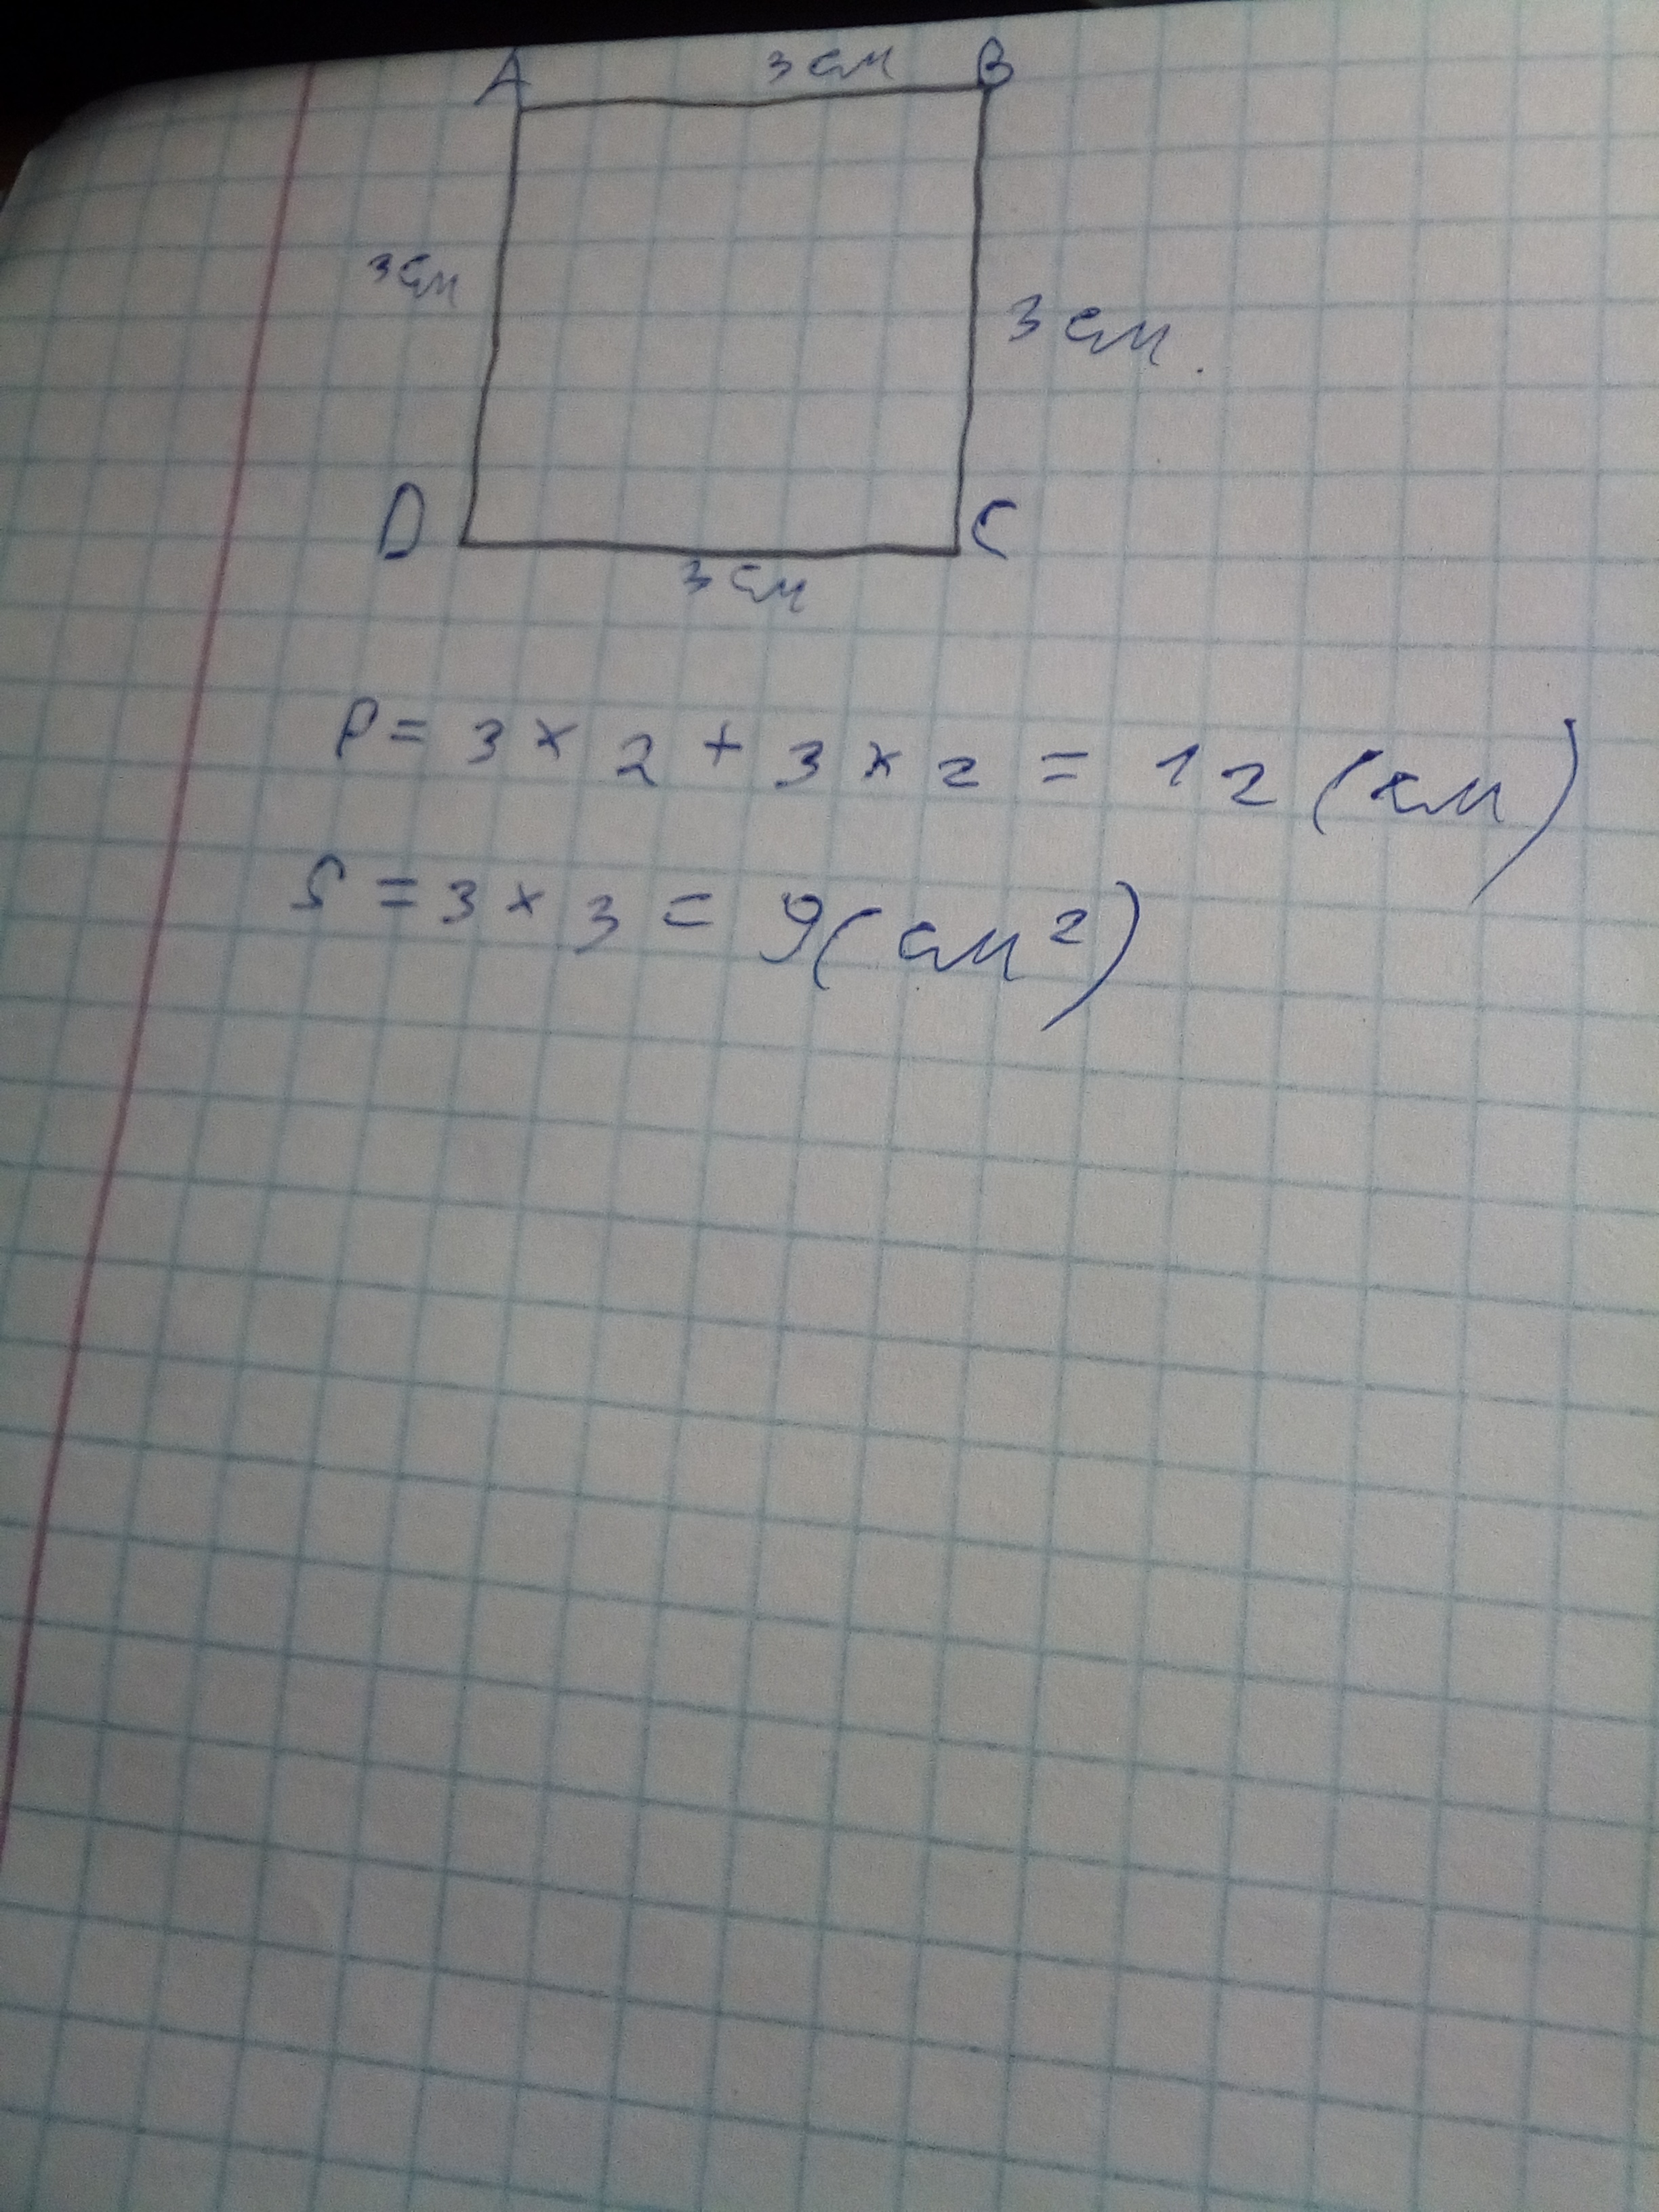 A 3 см B
3 см
3 см.
D C
3 см
P = 3 × 2 + 3 × 2 = 12 (см)
S = 3 × 3 = 9 (см²)